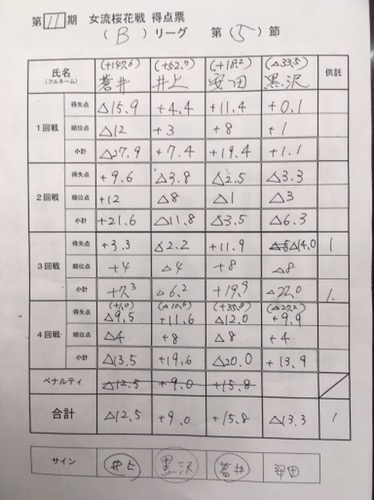 第 11 期 女流桜花戦 得点票
( B ) リーグ 第 (5) 節
氏名 (フルネーム) (+147.6) 蒼井 (+52.7) 井上 (+18.2) 安田 (△33.5) 黒沢 供託
1回戦 得失点 △15.9 +4.4 +11.4 +0.1
順位点 △12 +3 +8 +1
小計 △27.9 +7.4 +19.4 +1.1
2回戦 得失点 +9.6 △3.8 △2.5 △3.3
順位点 +12 △8 △1 △3
小計 +21.6 △11.8 △3.5 △6.3
3回戦 得失点 +3.3 △2.2 +11.9 △14.0 1
順位点 +4 △4 +8 △8
小計 +7.3 △6.2 +19.9 △22.0 1
4回戦 得失点 (+1.0) △9.5 (△10.6) +11.6 (+35.8) △12.0 (△27.2) +9.9
順位点 △4 +8 △8 +4
小計 △13.5 +19.6 △20.0 +13.9
ペナルティ △12.5 +9.0 +15.8
合計 △12.5 +9.0 +15.8 △13.3 1
サイン 井上 黒沢 蒼井 安田